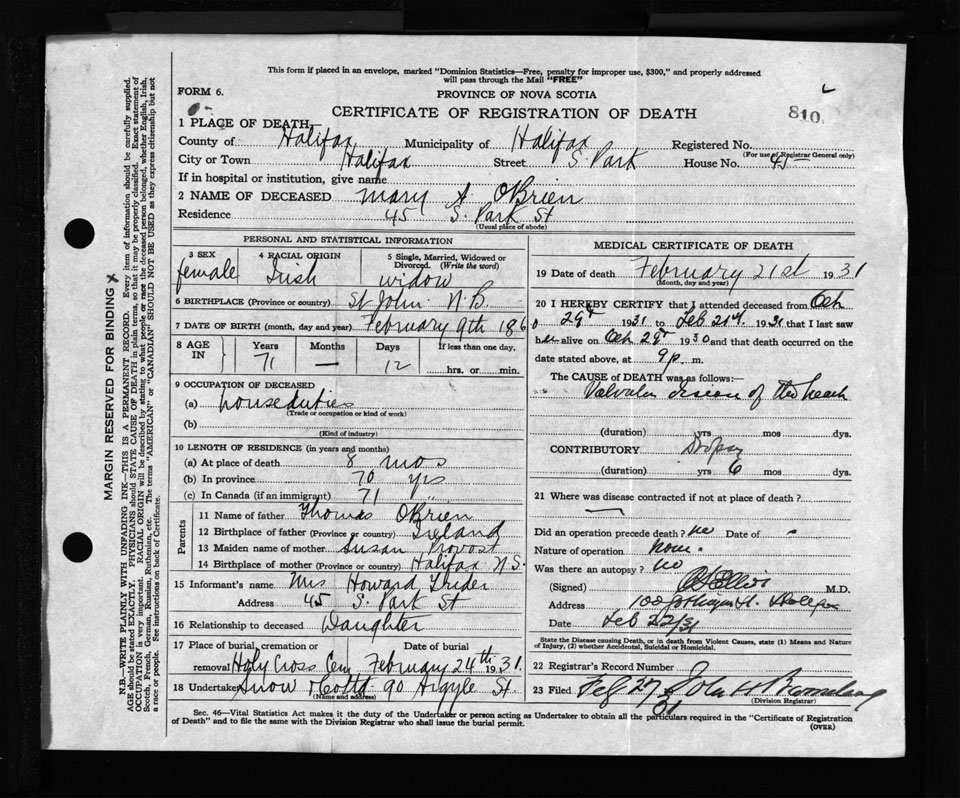 This form if placed in an envelope, marked "Dominion Statistics—Free, penalty for improper use, $300," and properly addressed
will pass through the Mail "FREE"
FORM 6.
PROVINCE OF NOVA SCOTIA
CERTIFICATE OF REGISTRATION OF DEATH
810
1 PLACE OF DEATH—
County of Halifax Municipality of Halifax Registered No.
(For use of Registrar General only)
City or Town Halifax Street S. Park House No. 45
If in hospital or institution, give name
2 NAME OF DECEASED Mary A O'Brien
Residence 45 S. Park St
(Usual place of abode)
PERSONAL AND STATISTICAL INFORMATION
3 SEX female
4 RACIAL ORIGIN Irish
5 Single, Married, Widowed or Divorced. (Write the word) widow
6 BIRTHPLACE (Province or country) St John N.B.
7 DATE OF BIRTH (month, day and year) February 9th 186
8 AGE IN Years 71 Months — Days 12 If less than one day, hrs. or min.
9 OCCUPATION OF DECEASED
(a) house duties
(Trade or occupation or kind of work)
(b)
(Kind of industry)
10 LENGTH OF RESIDENCE (in years and months)
(a) At place of death 8 mos
(b) In province 70 yrs
(c) In Canada (if an immigrant) 71 "
Parents
11 Name of father Thomas O'Brien
12 Birthplace of father (Province or country) Ireland
13 Maiden name of mother Susan Provost
14 Birthplace of mother (Province or country) Halifax N.S.
15 Informant's name Mrs Howard Grider
Address 45 S. Park St
16 Relationship to deceased Daughter
17 Place of burial, cremation or removal Holy Cross Cem Date of burial February 24th 1931
18 Undertaker Snow & Co Ltd 90 Argyle St.
(Name and address)
MEDICAL CERTIFICATE OF DEATH
19 Date of death February 21st 1931
(Month, day and year)
20 I HEREBY CERTIFY that I attended deceased from Oct
29th 1931 to Feb 21st 1931 that I last saw
her alive on Oct 29th 1930 and that death occurred on the
date stated above, at 9 p. m.
The CAUSE of DEATH was as follows:
Valvular Lesion of the heart
(duration) yrs mos dys.
CONTRIBUTORY Dropsy
(duration) yrs 6 mos dys.
21 Where was disease contracted if not at place of death?
—
Did an operation precede death? no Date of
Nature of operation none.
Was there an autopsy? no
(Signed) Ellis M.D.
Address Halifax
Date Feb 22/31
State the Disease causing Death, or in death from Violent Causes, state (1) Means and Nature
of Injury, (2) whether Accidental, Suicidal or Homicidal.
22 Registrar's Record Number
23 Filed Feb 27 31 John
(Division Registrar)
Sec. 46—Vital Statistics Act makes it the duty of the Undertaker or person acting as Undertaker to obtain all the particulars required in the "Certificate of Registration
of Death" and to file the same with the Division Registrar who shall issue the burial permit.
(OVER)
MARGIN RESERVED FOR BINDING
N.B.—WRITE PLAINLY WITH UNFADING INK—THIS IS A PERMANENT RECORD. Every item of information should be carefully supplied.
AGE should be stated EXACTLY. PHYSICIANS should STATE CAUSE OF DEATH in plain terms, so that it may be properly classified. Exact statement of
OCCUPATION is very important. RACIAL ORIGIN will be described by stating to what people or race the deceased person belonged, whether English, Irish,
Scotch, French, German, Russian, Ruthenian, etc. The terms "AMERICAN" or "CANADIAN" SHOULD NOT BE USED as they express citizenship but not
a race or people. See instructions on back of Certificate.